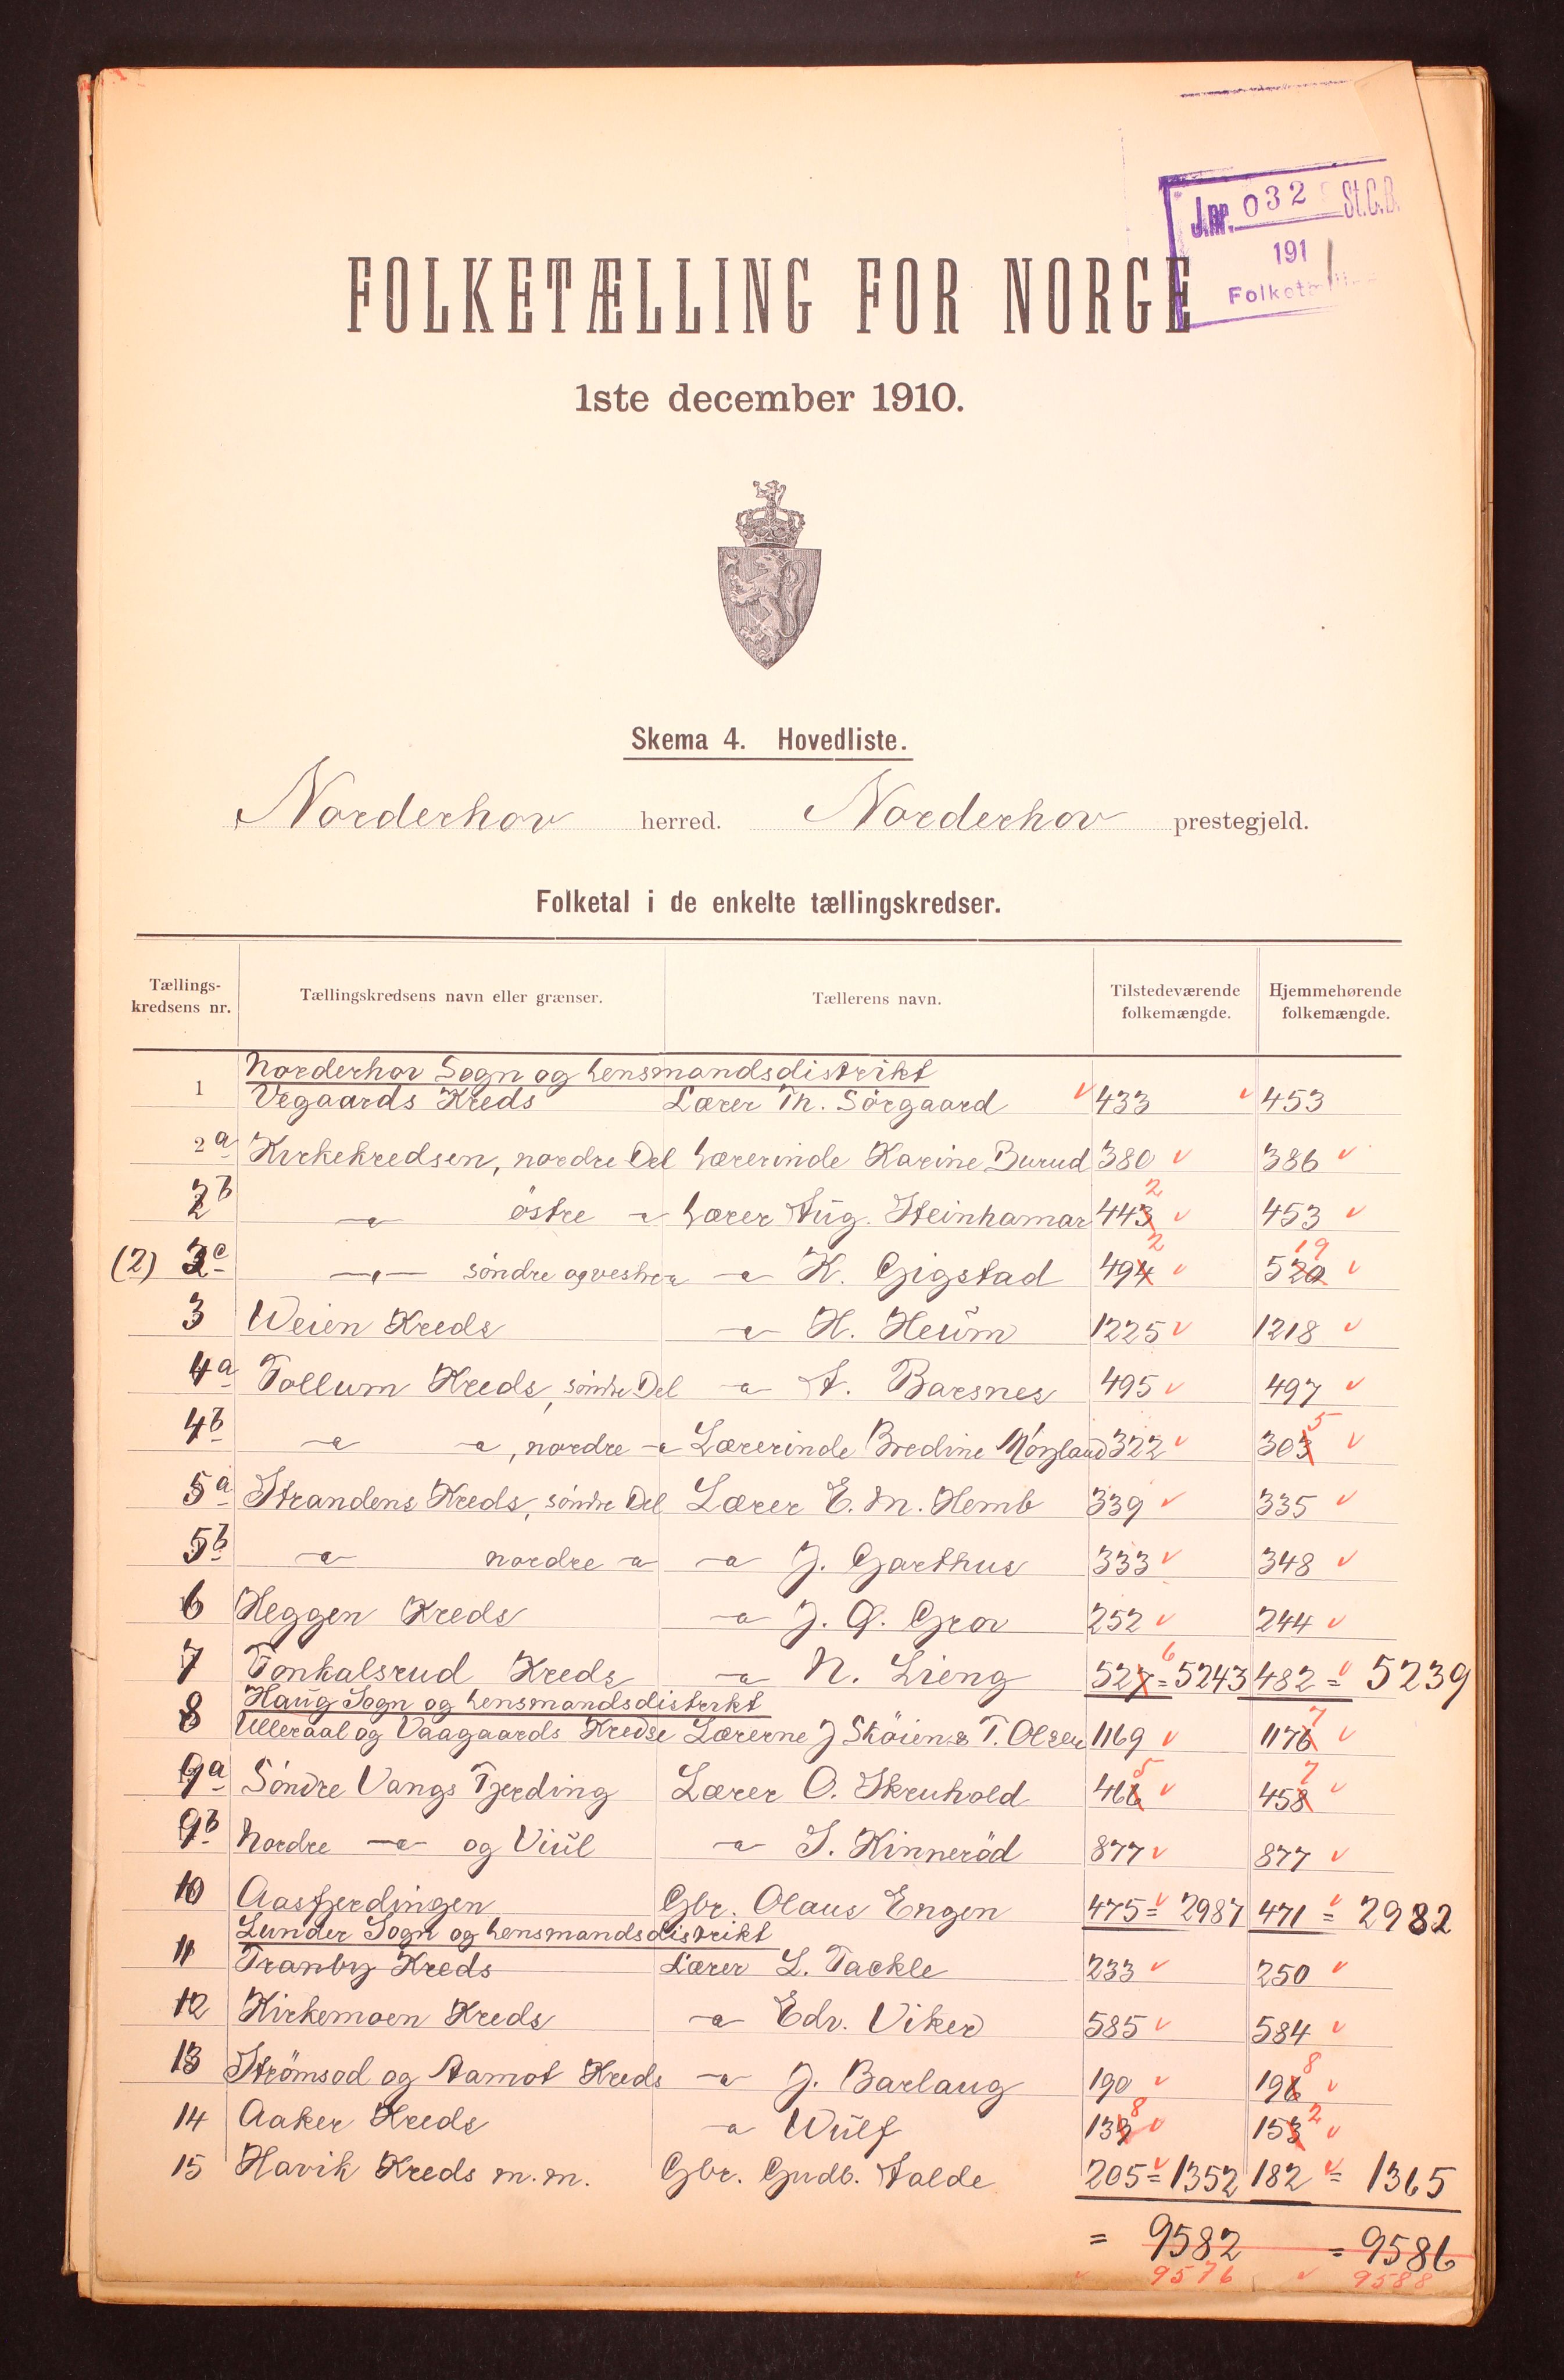 J.nr. 032 St.C.B.
191
FOLKETÆLLING FOR NORGE
1ste december 1910.
Skema 4. Hovedliste.
Norderhov herred. Norderhov prestegjeld.
Folketal i de enkelte tællingskredser.
Tællings-kredsens nr. Tællingskredsens navn eller grænser. Tællerens navn. Tilstedeværende folkemængde. Hjemmehørende folkemængde.
Norderhov Sogn og Lensmandsdistrikt
1 Vegaards Kreds Lærer Th. Sörgaard 433 453
2a Kirkekredsen, nordre Del Lærerinde Karine Burud 380 386
2b -"- östre -"- Lærer Aug. Steinhamar 443 2 453
(2) 2c -"- söndre og vestre -"- -"- K. Gigstad 494 2 520 19
3 Weien Kreds -"- H. Heŭm 1225 1218
4a Tollum Kreds, söndre Del -"- A. Barsnes 495 497
4b -"- -"-, nordre -"- Lærerinde Bredine 322 303 5
5a Strandens Kreds, söndre Del Lærer E. M. Hemb 339 335
5b -"- nordre -"- -"- J. Garthus 333 348
6 Heggen Kreds -"- J. G. Grov 252 244
7 Tonkalsrud Kreds -"- N. Lieng 527 6 = 5243 482 = 5239
Haŭg Sogn og Lensmandsdistrikt
8 Ulleraal og Vaagaards Kredse Lærerne J Sköien & T. Olsen 1169 1176 7
9a Söndre Vangs Fjerding Lærer O. Skruhold 466 5 458 7
9b Nordre -"- og Viŭl -"- S. Kinneröd 877 877
10 Aasfjerdingen Gbr. Olaus Engen 475 = 2987 471 = 2982
Lunder Sogn og Lensmandsdistrikt
11 Tranby Kreds Lærer L. Tackle 233 250
12 Kirkemoen Kreds -"- Edv. Viker 585 584
13 Strömsod og Aamot Kreds -"- J. Barlaug 190 196 8
14 Aaker Kreds -"- Wŭlf 139 8 153 2
15 Havik Kreds m.m. Gbr. Gudb. Aalde 205 = 1352 182 = 1365
= 9582 = 9586
9576 9588